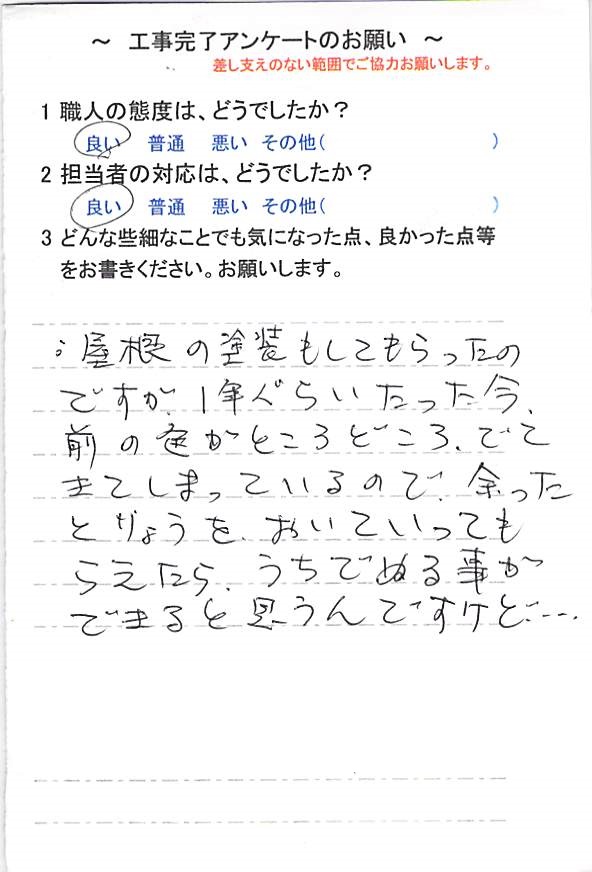 ～ 工事完了アンケートのお願い ～
差し支えのない範囲でご協力お願いします。
1 職人の態度は、どうでしたか？
良い 普通 悪い その他( )
2 担当者の対応は、どうでしたか？
良い 普通 悪い その他( )
3 どんな些細なことでも気になった点、良かった点等
をお書きください。お願いします。
：屋根の塗装もしてもらったの
ですが、1年ぐらいたった今、
前の色がところどころ、でて
きてしまっているので、余った
とりょうを、おいていっても
らえたら、うちでぬる事が
できると思うんですけど…